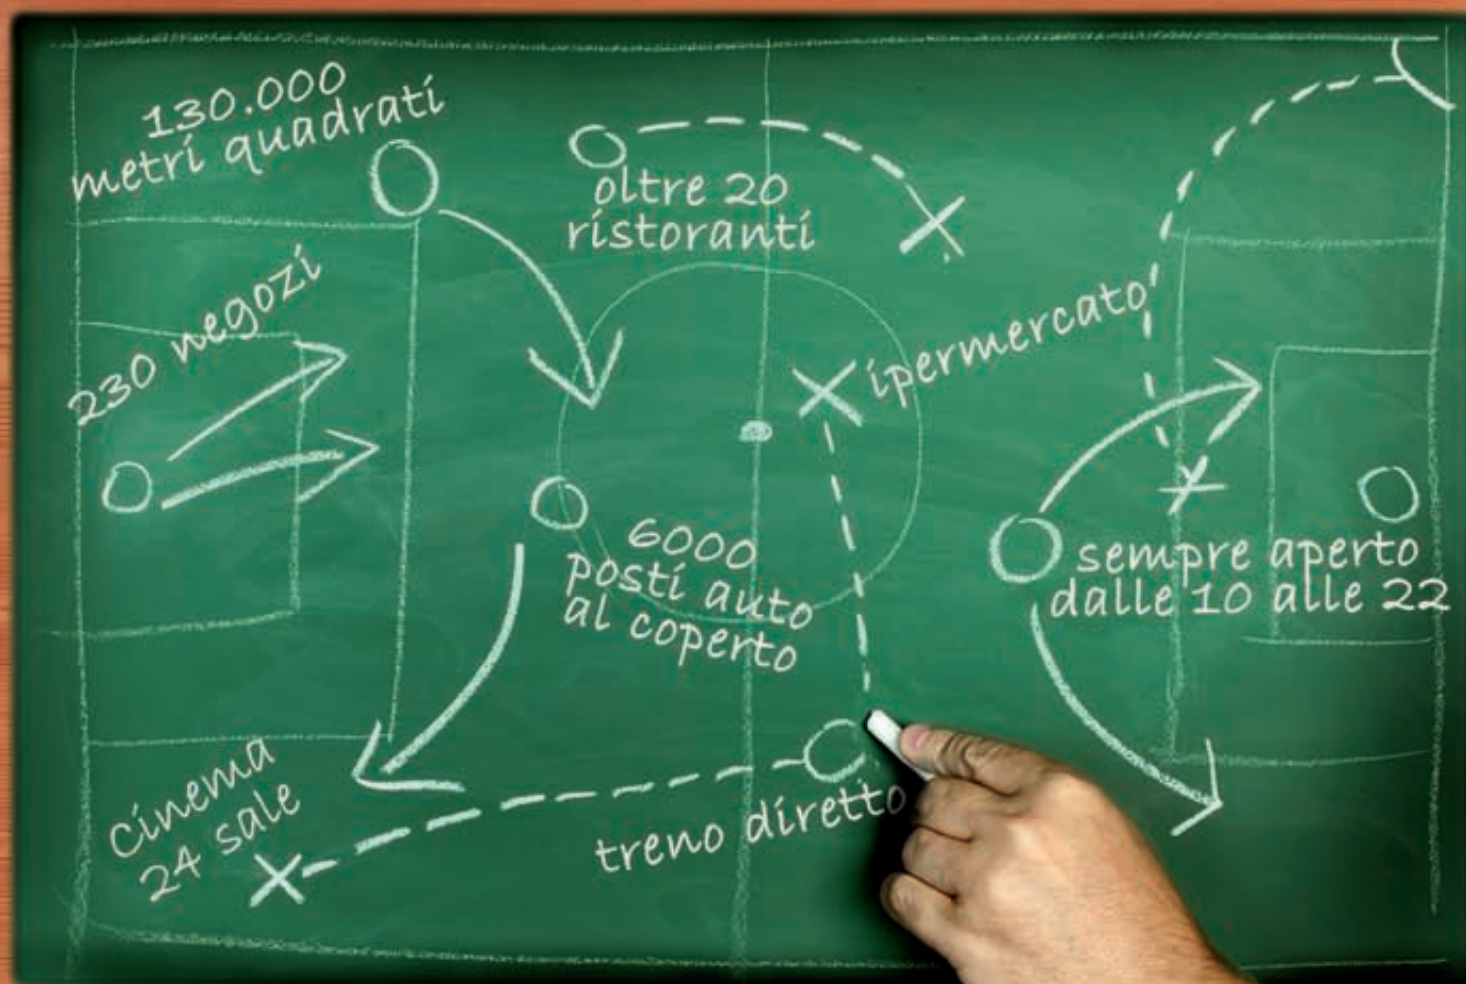 130.000
metri quadrati
oltre 20
ristoranti
230 negozi
ipermercato
6000
posti auto
al coperto
sempre aperto
dalle 10 alle 22
cinema
24 sale
treno diretto